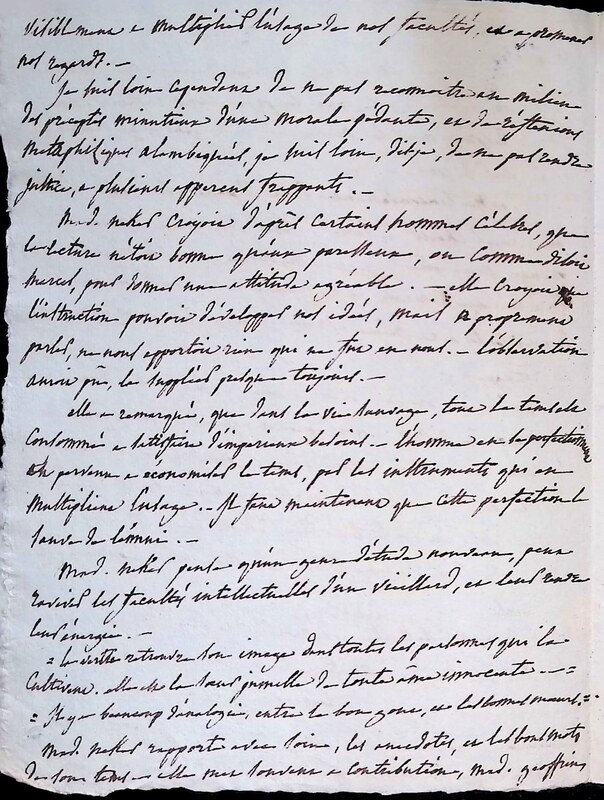 visiblement a multiplier l'usage de nos facultés, et a promener
nos regards. —
je suis loin cependant de ne pas reconnoitre au milieu
des préceptes minutieux d'une morale pédante, et de réflexions
metaphisiques alambiquées, je suis loin, disje, de ne pas rendre
justice, a plusieurs apperçus frappants. —
Mad. neker croyoit d'après certains hommes célebres, que
la lecture n'étoit bonne qu'aux paresseux, ou comme disoit
marcel, pour donner une attitude agréable. — elle croyoit que
l'instruction pouvoit développer nos idées, mais a proprement
parler, ne nous apportoit rien qui ne fut en nous. — l'observation
auroit pu, la suppléer presque toujours. —
elle a remarqué, que dans la vie sauvage, tous le tems est
consommé a satisfaire d'imperieux besoins. — l'homme en se perfectionnant
est parvenu a économiser le tems, par les instruments qui en
multiplient l'usage. — Il faut maintenant que cette perfection le
sauve de l'ennui. —
Mad. neker pense qu'un genre d'étude nouveau, peut
raviver les facultés intellectuelles d'un vieillard, et leur rendre
leur énergie. —
= la vertu retrouve son image dans toutes les personnes qui la
cultivent. elle est la soeur jumelle de toute âme innocente. — =
= Il y a beaucoup d'analogie, entre le bon gout, et les bonnes moeurs. =
Mad. neker rapporte avec soin, les anecdotes, et les bons mots
de son tems. — elle met souvent a contribution, mad. geoffrin,